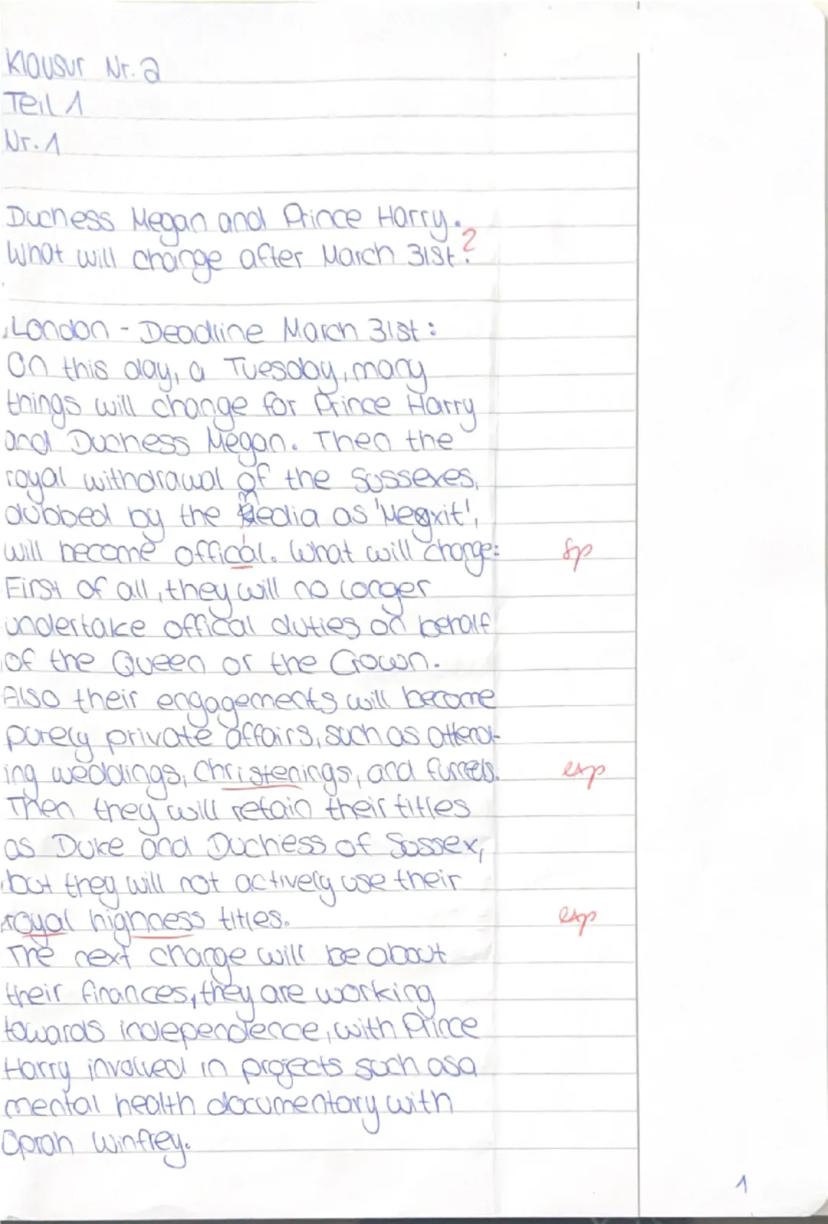 Klausur Nr. 2
Teil 1
Nr. 1
Duchess Megan and Prince Harry.
What will change after March 31st. ?
London - Deadline March 31st:
On this day, a Tuesday, many
things will change for Prince Harry
and Duchess Megan. Then the
royal withdrawal of the Sussexes,
dubbed by the media as 'Megxit',
will become offical. What will change: sp
First of all, they will no longer
undertake offical duties on behalf
of the Queen or the Crown.
Also their engagements will become
purely private affairs, such as attend-
ing weddings, christenings, and funrels. exp
Then they will retain their titles
as Duke and Duchess of Sussex,
but they will not actively use their
royal highness titles. exp
The next change will be about
their finances, they are working
towards independence, with Prince
Harry involved in projects such as a
mental health documentary with
Oprah Winfrey.
1